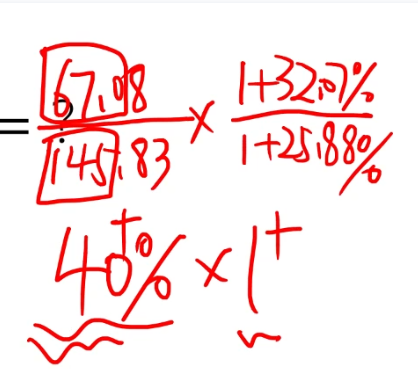 = 67.08 / 145.83 × (1+32.07%) / (1+25.88%)
40⁺% × 1⁺